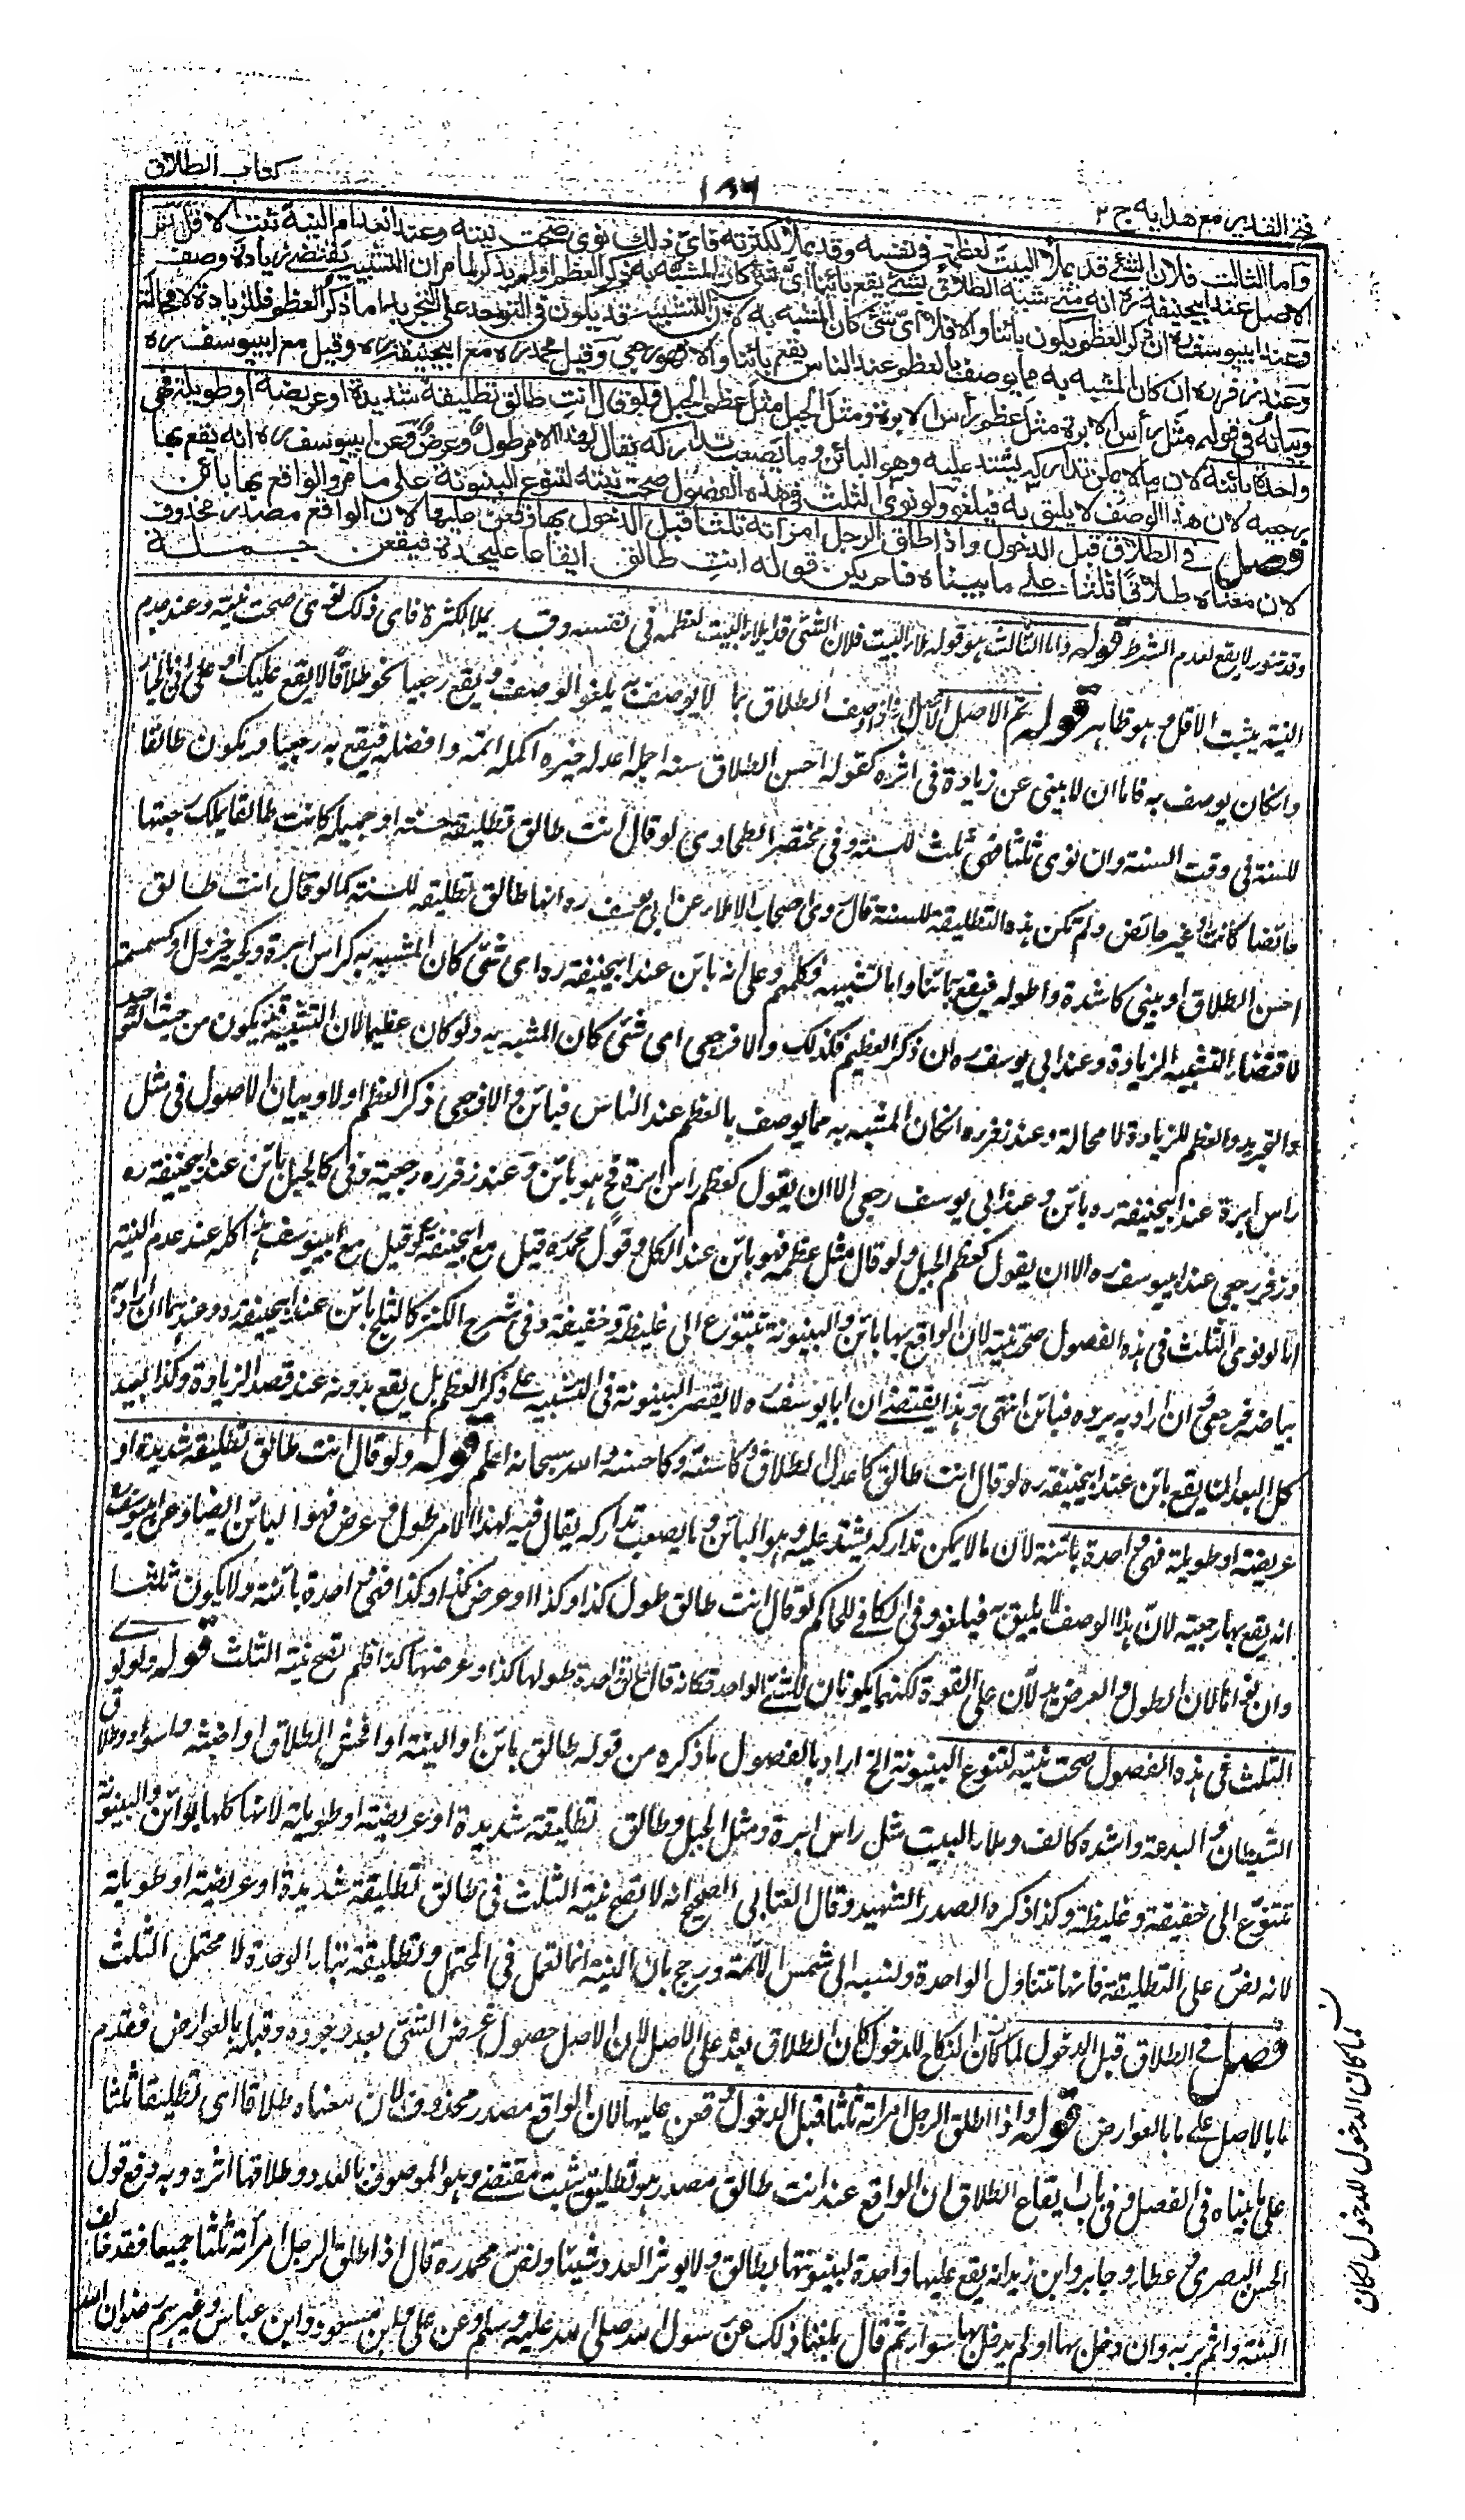 فتح القدير مع هدايه ج ٢
١٨٦
كتاب الطلاق
واما الثالث فلان الشئ قد يملأ البيت لعظمه فى نفسه وقد يملأ لكثرته فاى ذلك نوى صحت نيته وعند انعدام النية ثبت الاقل ثم
الاصل عند ابيحنيفة ره انه متى شبه الطلاق بشئ يقع بائنا اى شئ كان المشبه به ذكر العظم او لم يذكر لما مر ان التشبيه يقتضى زيادة وصف
وعند ابيوسف ره ان ذكر العظم يكون بائنا والا فلا اى شئ كان المشبه به لان التشبيه قد يكون فى التوحد على التجريد اما ذكر العظم فللزيادة لا محالة
وعند زفر ره ان كان المشبه به مما يوصف بالعظم عند الناس يقع بائنا والا فهو رجعى وقيل محمد ره مع ابيحنيفة ره وقيل مع ابيوسف ره
وبيانه فى قوله مثل رأس الابرة مثل عظم رأس الابرة ومثل الجبل مثل عظم الجبل ولو قال انت طالق تطليقة شديدة او عريضة او طويلة فهى
واحدة بائنة لان ما لا يمكن تداركه يشتد عليه وهو البائن وما يصعب تداركه يقال لهذا الامر طول وعرض وعن ابيوسف ره انه يقع بها
رجعية لان هذا الوصف لا يليق به فيلغو ولو نوى الثلث فى هذه الفصول صحت نيته لتنوع البينونة على ما مر والواقع بها بائن
فصل فى الطلاق قبل الدخول واذا طلق الرجل امرأته ثلثا قبل الدخول بها وقعن عليها لان الواقع مصدر محذوف
لان معناه طلاقا ثلثا على ما بيناه فلم يكن قوله انت طالق ايقاعا عليحدة فيقعن جملة
وقد تنور لا يقع لعدم الشرط قوله واما الثالث هو قوله ملأ البيت فلان الشئ قد يملأ البيت لعظمه فى نفسه وقد يملأ لكثرة فاى ذلك نوى صحت نيته وعند عدم
النية يثبت الاقل وهو ظاهر قوله ثم الاصل الاصل انه اذا وصف الطلاق بما لا يوصف به يلغو الوصف ويقع رجعيا نحو طلاقا لا يقع عليك او على انى بالخيار
وانكان يوصف به فاما ان لا ينبئ عن زيادة فى اثره كقوله احسن الطلاق سنه اجمله اعدله خيره اكمله اتمه وافضله فيقع به رجعيا وتكون طالقا
للسنة فى وقت السنة وان نوى ثلثا فهى ثلث للسنة وفى مختصر الطحاوى لو قال انت طالق تطليقة حسنة او جميلة كانت طالقا يملك رجعتها
حائضا كانت او غير حائض ولم تكن هذه التطليقة للسنة قال وروى اصحاب الاملاء عن ابى يوسف ره انها طالق تطليقة للسنة كما لو قال انت طالق
احسن الطلاق او ينبئ كاشدة واطوله فيقع بائنا واما التشبيه فكلهم وعلى انه بائن عند ابيحنيفة ره اى شئ كان المشبه به كراس ابرة وكحبة خردل او كسمسمة
لاقتضاء التشبيه الزيادة وعند ابى يوسف ره ان ذكر العظيم فكذلك والا فرجعى اى شئ كان المشبه به ولو كان عظيما لان التشبيه قد يكون من حيث التوحيد
والتجريد والعظم للزيادة لا محالة وعند زفر ره انكان المشبه به مما يوصف بالعظم عند الناس فبائن والا فرجعى ذكر العظم اولا وبيان الاصول فى مثل
راس ابرة عند ابيحنيفة ره بائن وعند ابى يوسف رجعى الا ان يقول كعظم راس ابرة فح هو بائن وعند زفر ره رجعية وفى كالجبل بائن عند ابيحنيفة ره
وزفر رجعى عند ابيوسف ره الا ان يقول كعظم الجبل ولو قال مثل عظمه فهو بائن عند الكل وقول محمد ره قيل مع ابيحنيفة وقيل مع ابيوسف هذا كله عند عدم النية
اما لو نوى الثلث فى هذه الفصول صحت نيته لان الواقع بها بائن والبينونة تتنوع الى غليظة وخفيفة وفى شرح الكنز كالثلج بائن عند ابيحنيفة ره وعندهما ان اراد به
بياضه فرجعى وان اراد به برده فبائن انتهى وهذا يقتضى ان ابا يوسف ره لا يقصر البينونة فى التشبيه على ذكر العظم بل يقع بدونه عند قصد الزيادة وكذا يبعد
كل البعد ان يقع بائن عند ابيحنيفة ره لو قال انت طالق كاعدل الطلاق وكاسنه وكاحسنه والله سبحانه اعلم قوله ولو قال انت طالق تطليقة شديدة او
عريضة او طويلة فهى واحدة بائنة لان ما لا يمكن تداركه يشتد عليه وهو البائن وما يصعب تداركه يقال فيه لهذا الامر طول وعرض فهو البائن ايضا وعن ابيوسف ره
انه يقع بها رجعية لان هذا الوصف لا يليق به فيلغو وفى الكافى للحاكم لو قال انت طالق طول كذا وكذا او عرض كذا وكذا فهى واحدة بائنة ولا يكون ثلثا
وان نواها لان الطول والعرض يدلان على القوة لكنهما يكونان للشئ الواحد فكانه قال طالق واحدة طولها كذا وعرضها كذا فلم تصح نية الثلث قوله ولو نوى
الثلث فى هذه الفصول صحت نيته لتنوع البينونة الخ اراد بالفصول ما ذكره من قوله طالق بائن او البتة او افحش الطلاق او اخبثه واسوأه وطلاق
الشيطان والبدعة واشده كالف وملأ البيت مثل راس ابرة ومثل الجبل وطالق تطليقة شديدة او عريضة او طويلة لانها كلها بوائن والبينونة
تتنوع الى خفيفة وغليظة وكذا ذكره الصدر الشهيد وقال العتابى الصحيح انه لا تصح نية الثلث فى طالق تطليقة شديدة او عريضة او طويلة
لانه نص على التطليقة فانها تتناول الواحدة ونسبه الى شمس الائمة ورجح بان النية انما تعمل فى المحتمل وتطليقة بتاء الوحدة لا تحتمل الثلث
فصل فى الطلاق قبل الدخول لما كان النكاح للدخول كان الطلاق بعده على الاصل لان الاصل حصول غرض الشئ بعد وجوده وقبله بالعوارض فقدم
ما بالاصل على ما بالعوارض قوله واذا طلق الرجل امرأته ثلثا قبل الدخول وقعن عليها لان الواقع مصدر محذوف لان معناه طلاقا اى تطليقا ثلثا
على ما بيناه فى الفصل وفى باب ايقاع الطلاق ان الواقع عند انت طالق مصدر هو تطليق يثبت مقتضى وهو الموصوف بالعدد وطلاقها اثره وبه دفع قول
الحسن البصرى وعطاء وجابر وابن زيد انه يقع عليها واحدة لبينونتها بطالق ولا يوثر العدد شيئا ونص محمد ره قال اذا طلق الرجل امرأته ثلثا جميعا فقد خالف
السنة واثم بربه وان دخل بها او لم يدخل بها سواء ثم قال بلغنا ذلك عن رسول الله صلى الله عليه وسلم وعن على وابن مسعود وابن عباس وغيرهم رضوان الله
لما كان الدخول للدخول الكان